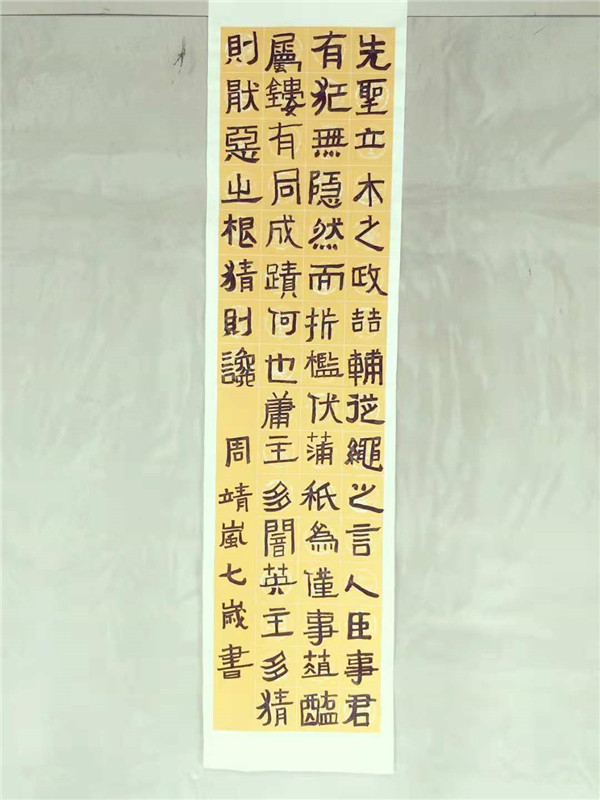 先聖立木之政喆輔從繩之言人臣事君
有犯無隱然而折檻伏蒲秖為僅事葅醢
屬鏤有同成蹟何也庸主多闇英主多猜
則猒惡之根猜則讒
周靖嵐七歲書